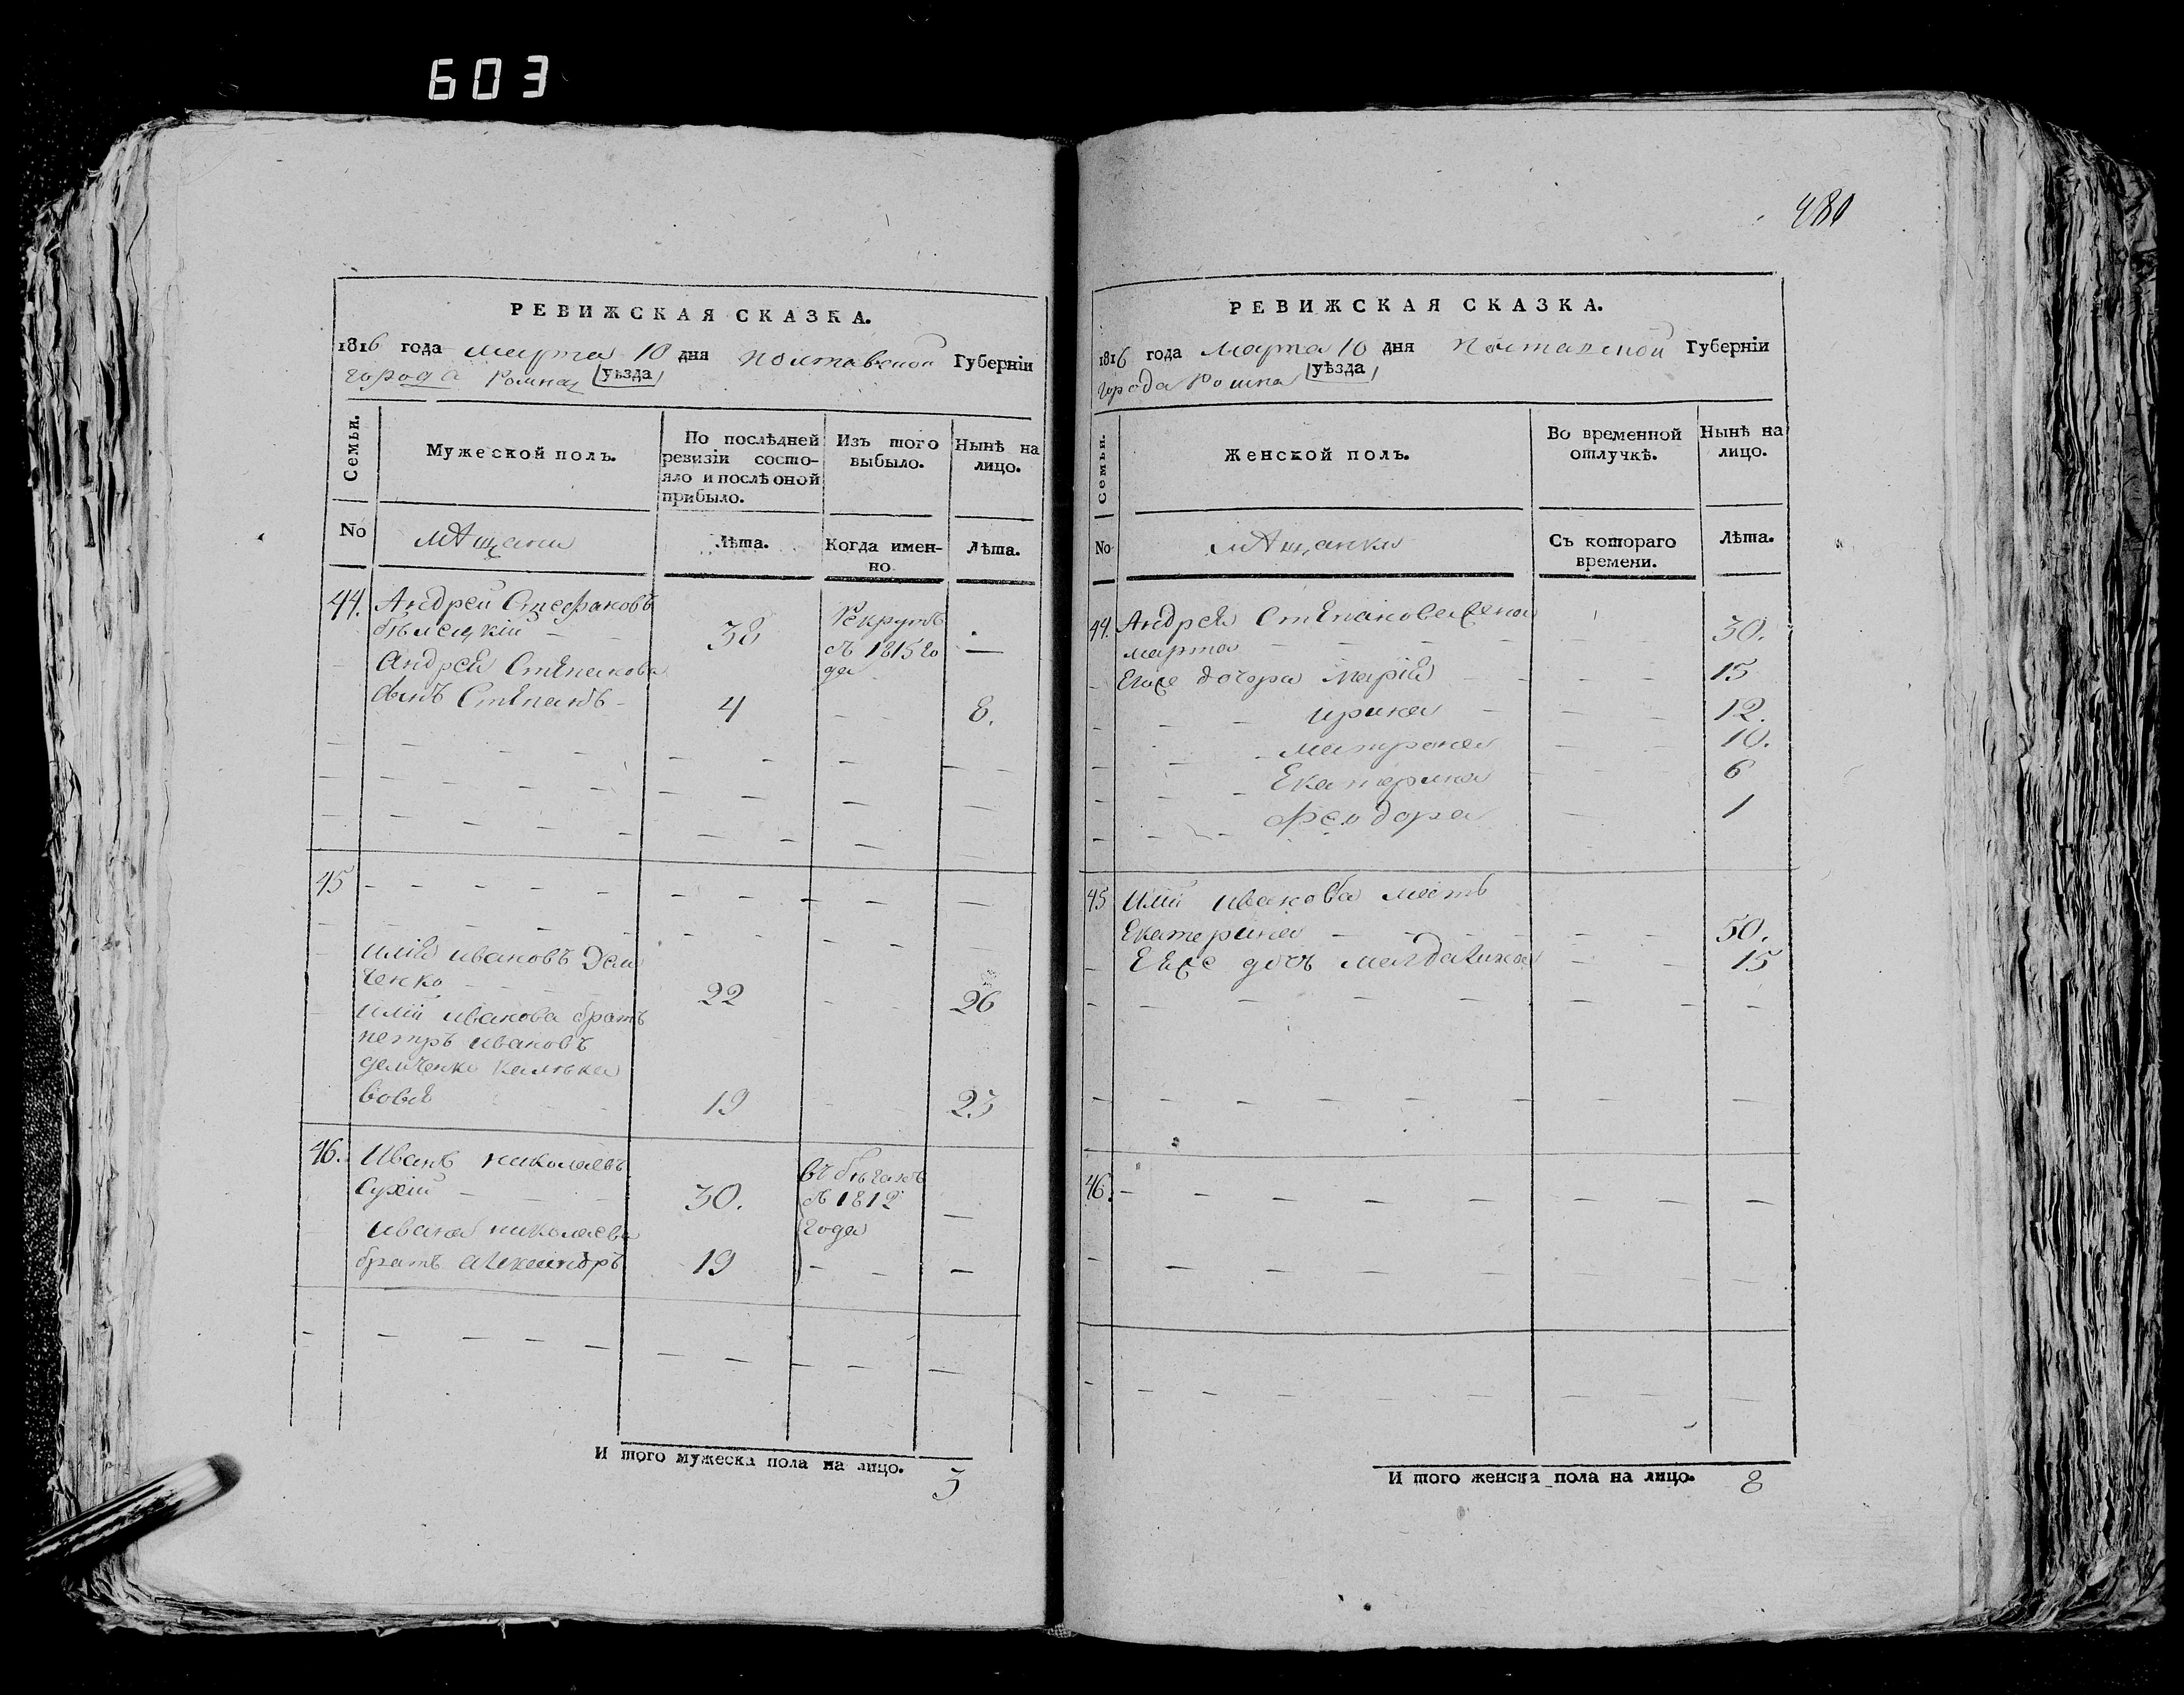 603
480
РЕВИЖСКАЯ СКАЗКА.
1816 года марта 10 дня Полтавской Губернїи
города Ромна уѣзда
Семьи.
Мужеской полъ.
По послѣдней ревизїи состо-
яло и послѣ оной
прибыло.
Изъ того
выбыло.
Нынѣ на
лицо.
No
мѣщани
Лѣта.
Когда имен-
но.
Лѣта.
44. Андрей Стефановъ
бѣлецкій
38
Рекрутъ
съ 1815 го
да
—
Андрея Степанова
сынъ Степанъ
4
8.
45
илія ивановъ Дем
ченко
22
26
иліи иванова братъ
петръ ивановъ
демченко калѣка
19
23
46. Иванъ николаевъ
Сухій
30.
въ бѣгахъ
съ 1812
года
—
ивана николаева
братъ александръ
19
—
И того мужеска пола на лицо. 3
РЕВИЖСКАЯ СКАЗКА.
1816 года марта 10 дня Полтавской Губернїи
города Ромна уѣзда
Семьи.
Женской полъ.
Во временной
отлучкѣ.
Нынѣ на
лицо.
No
мѣщанки
Съ котораго
времени.
Лѣта.
44. Андрея Степанова жена
марта
30.
Егоже дочери марія 15
ирина 12.
матрона 10.
Екатерина 6
феодора 1
45 иліи иванова мать
Екатерина 50.
Ееже дочь магдалина 15
46.
И того женска пола на лицо. 8